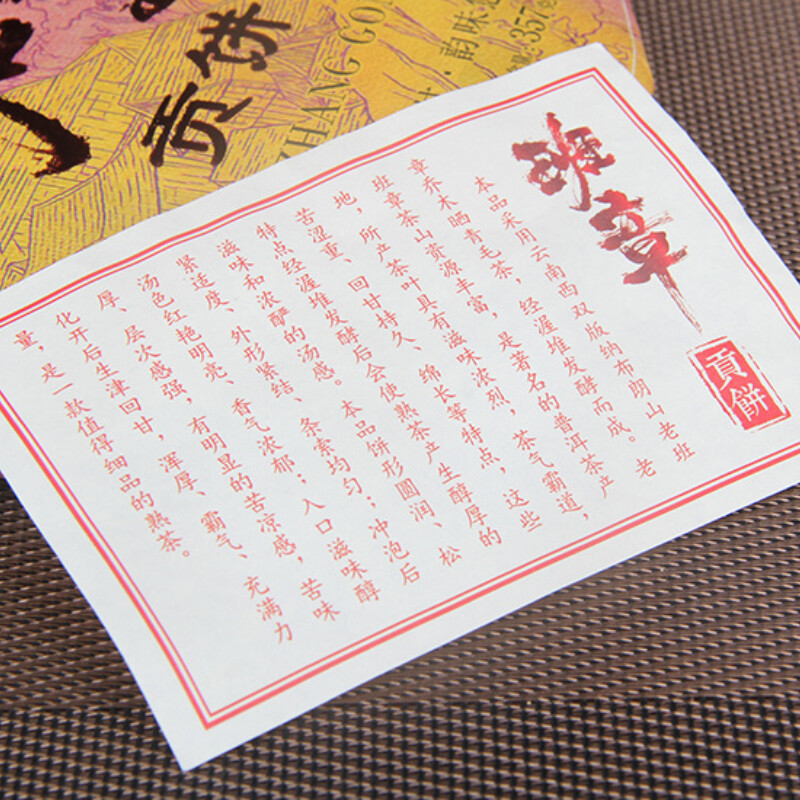 贡饼
ZHANG GO
韵味
357
班章
貢餅
本品采用云南西双版纳布朗山老班
章乔木晒青毛茶，经渥堆发酵而成。老
班章茶山资源丰富，是著名的普洱茶产
地，所产茶叶具有滋味浓烈，茶气霸道，
苦涩重、回甘持久、绵长等特点，这些
特点经渥堆发酵后会使熟茶产生醇厚的
滋味和浓酽的汤感。本品饼形圆润、松
紧适度、外形紧结、条索均匀；冲泡后
汤色红艳明亮、香气浓郁；入口滋味醇
厚、层次感强，有明显的苦凉感，苦味
化开后生津回甘，浑厚、霸气、充满力
量，是一款值得细品的熟茶。